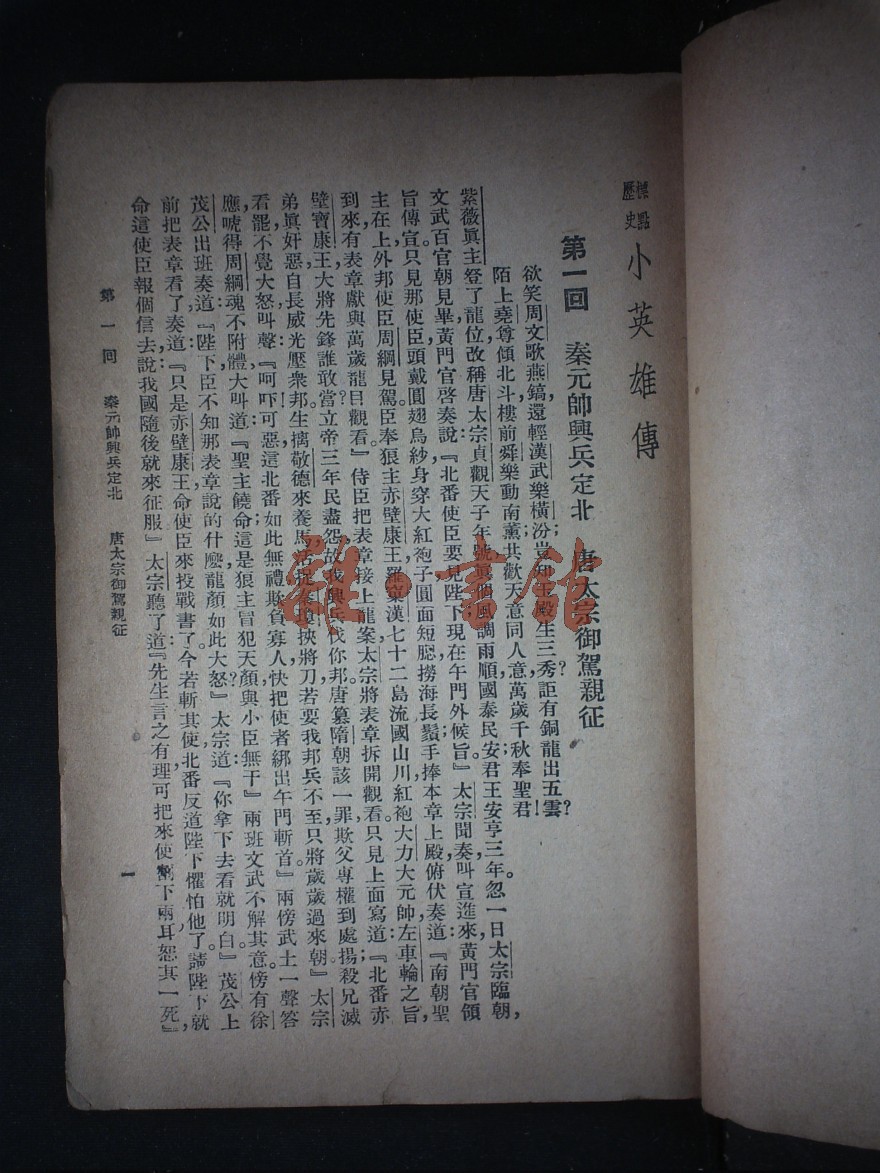 標點歷史
小英雄傳
第一回 秦元帥興兵定北 唐太宗御駕親征
欲笑周文歌燕鎬,還輕漢武樂橫汾;豈知玉殿生三秀?詎有銅龍出五雲?
陌上堯尊傾北斗,樓前舜樂動南薰;共歡天意同人意,萬歲千秋奉聖君!
紫薇眞主登了龍位,改稱唐太宗貞觀天子年號,眞個風調雨順,國泰民安,君王安享三年。忽一日太宗臨朝,
文武百官朝見畢,黃門官啓奏說:『北番使臣要見陛下,現在午門外候旨』太宗聞奏,叫宣進來,黃門官領
旨傳宣。只見那使臣頭戴圓翅烏紗,身穿大紅袍子,圓面短腮,撈海長鬚,手捧本章,上殿俯伏奏道:『南朝聖
主在上,外邦使臣周綱見駕,臣奉狼主赤壁康王羅窠漢七十二島流國山川紅袍大力大元帥左車輪之旨,
到來有表章獻與萬歲龍目觀看』侍臣把表章接上龍案,太宗將表章拆開觀看,只見上面寫道:『北番赤
壁寶康王,大將先鋒誰敢當?立帝三年民盡怨,故我興兵伐你邦。唐篡隋朝該一罪,欺父專權到處揚;殺兄滅
弟眞奸惡,自長威光壓衆邦。生擒敬德來養馬,活捉秦瓊挾將刀;若要我邦兵不至,只將歲歲過來朝。』太宗
看罷,不覺大怒,叫聲:『呵吓!可惡這北番如此無禮,欺負寡人,快把使者綁出午門斬首。』兩傍武士一聲答
應,唬得周綱魂不附體,大叫道:『聖主饒命!這是狼主冒犯天顏,與小臣無干』兩班文武不解其意,傍有徐
茂公出班奏道:『陛下,臣不知那表章說的什麼,龍顏如此大怒?』太宗道:『你拿下去看就明白』茂公上
前把表章看了,奏道:『只是赤壁康王命使臣來投戰書了,今若斬其使,北番反道陛下懼怕他了。請陛下就
命這使臣報個信去,說我國隨後就來征服』太宗聽了道:『先生言之有理,可把來使劓下兩耳,恕其一死』
第一回 秦元帥興兵定北 唐太宗御駕親征
一
雜·書館